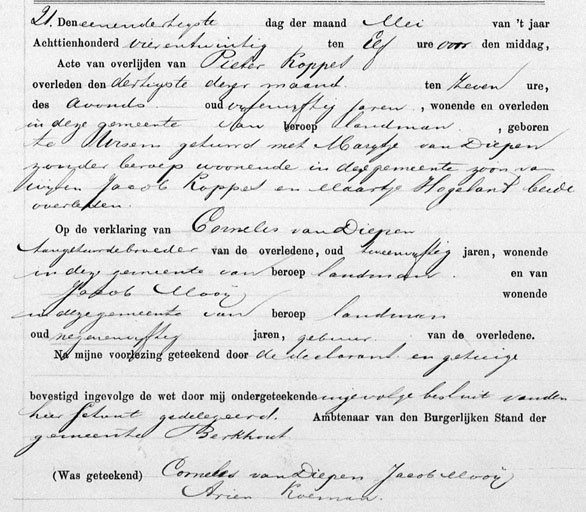 21. Den eenendertigste dag der maand Mei van 't jaar
Achttienhonderd vierentwintig ten Elf ure voor den middag,
Acte van overlijden van Pieter Koppes
overleden den dertigste dezer maand ten zeven ure,
des avonds oud vijfenvijftig jaren, wonende en overleden
in deze gemeente van beroep landman, geboren
te Ursem gehuwd met Maartje van Diepen
zonder beroep woonende in deze gemeente zoon van
wijlen Jacob Koppes en Maartje Hogelant beide
overleden.
Op de verklaring van Cornelis van Diepen
aangehuwdebroeder van de overledene, oud tweeenvijftig jaren, wonende
in deze gemeente van beroep landman en van
Jacob Mooij wonende
in deze gemeente van beroep landman
oud negenenvijftig jaren, gebuur van de overledene.
Na mijne voorlezing geteekend door de declarant en getuige
bevestigd ingevolge de wet door mij ondergeteekende ingevolge besluit van den
heer Schout gedelegeerd. Ambtenaar van den Burgerlijken Stand der
gemeente Berkhout
(Was geteekend) Cornelis van Diepen Jacob Mooij
Arien Koeman.